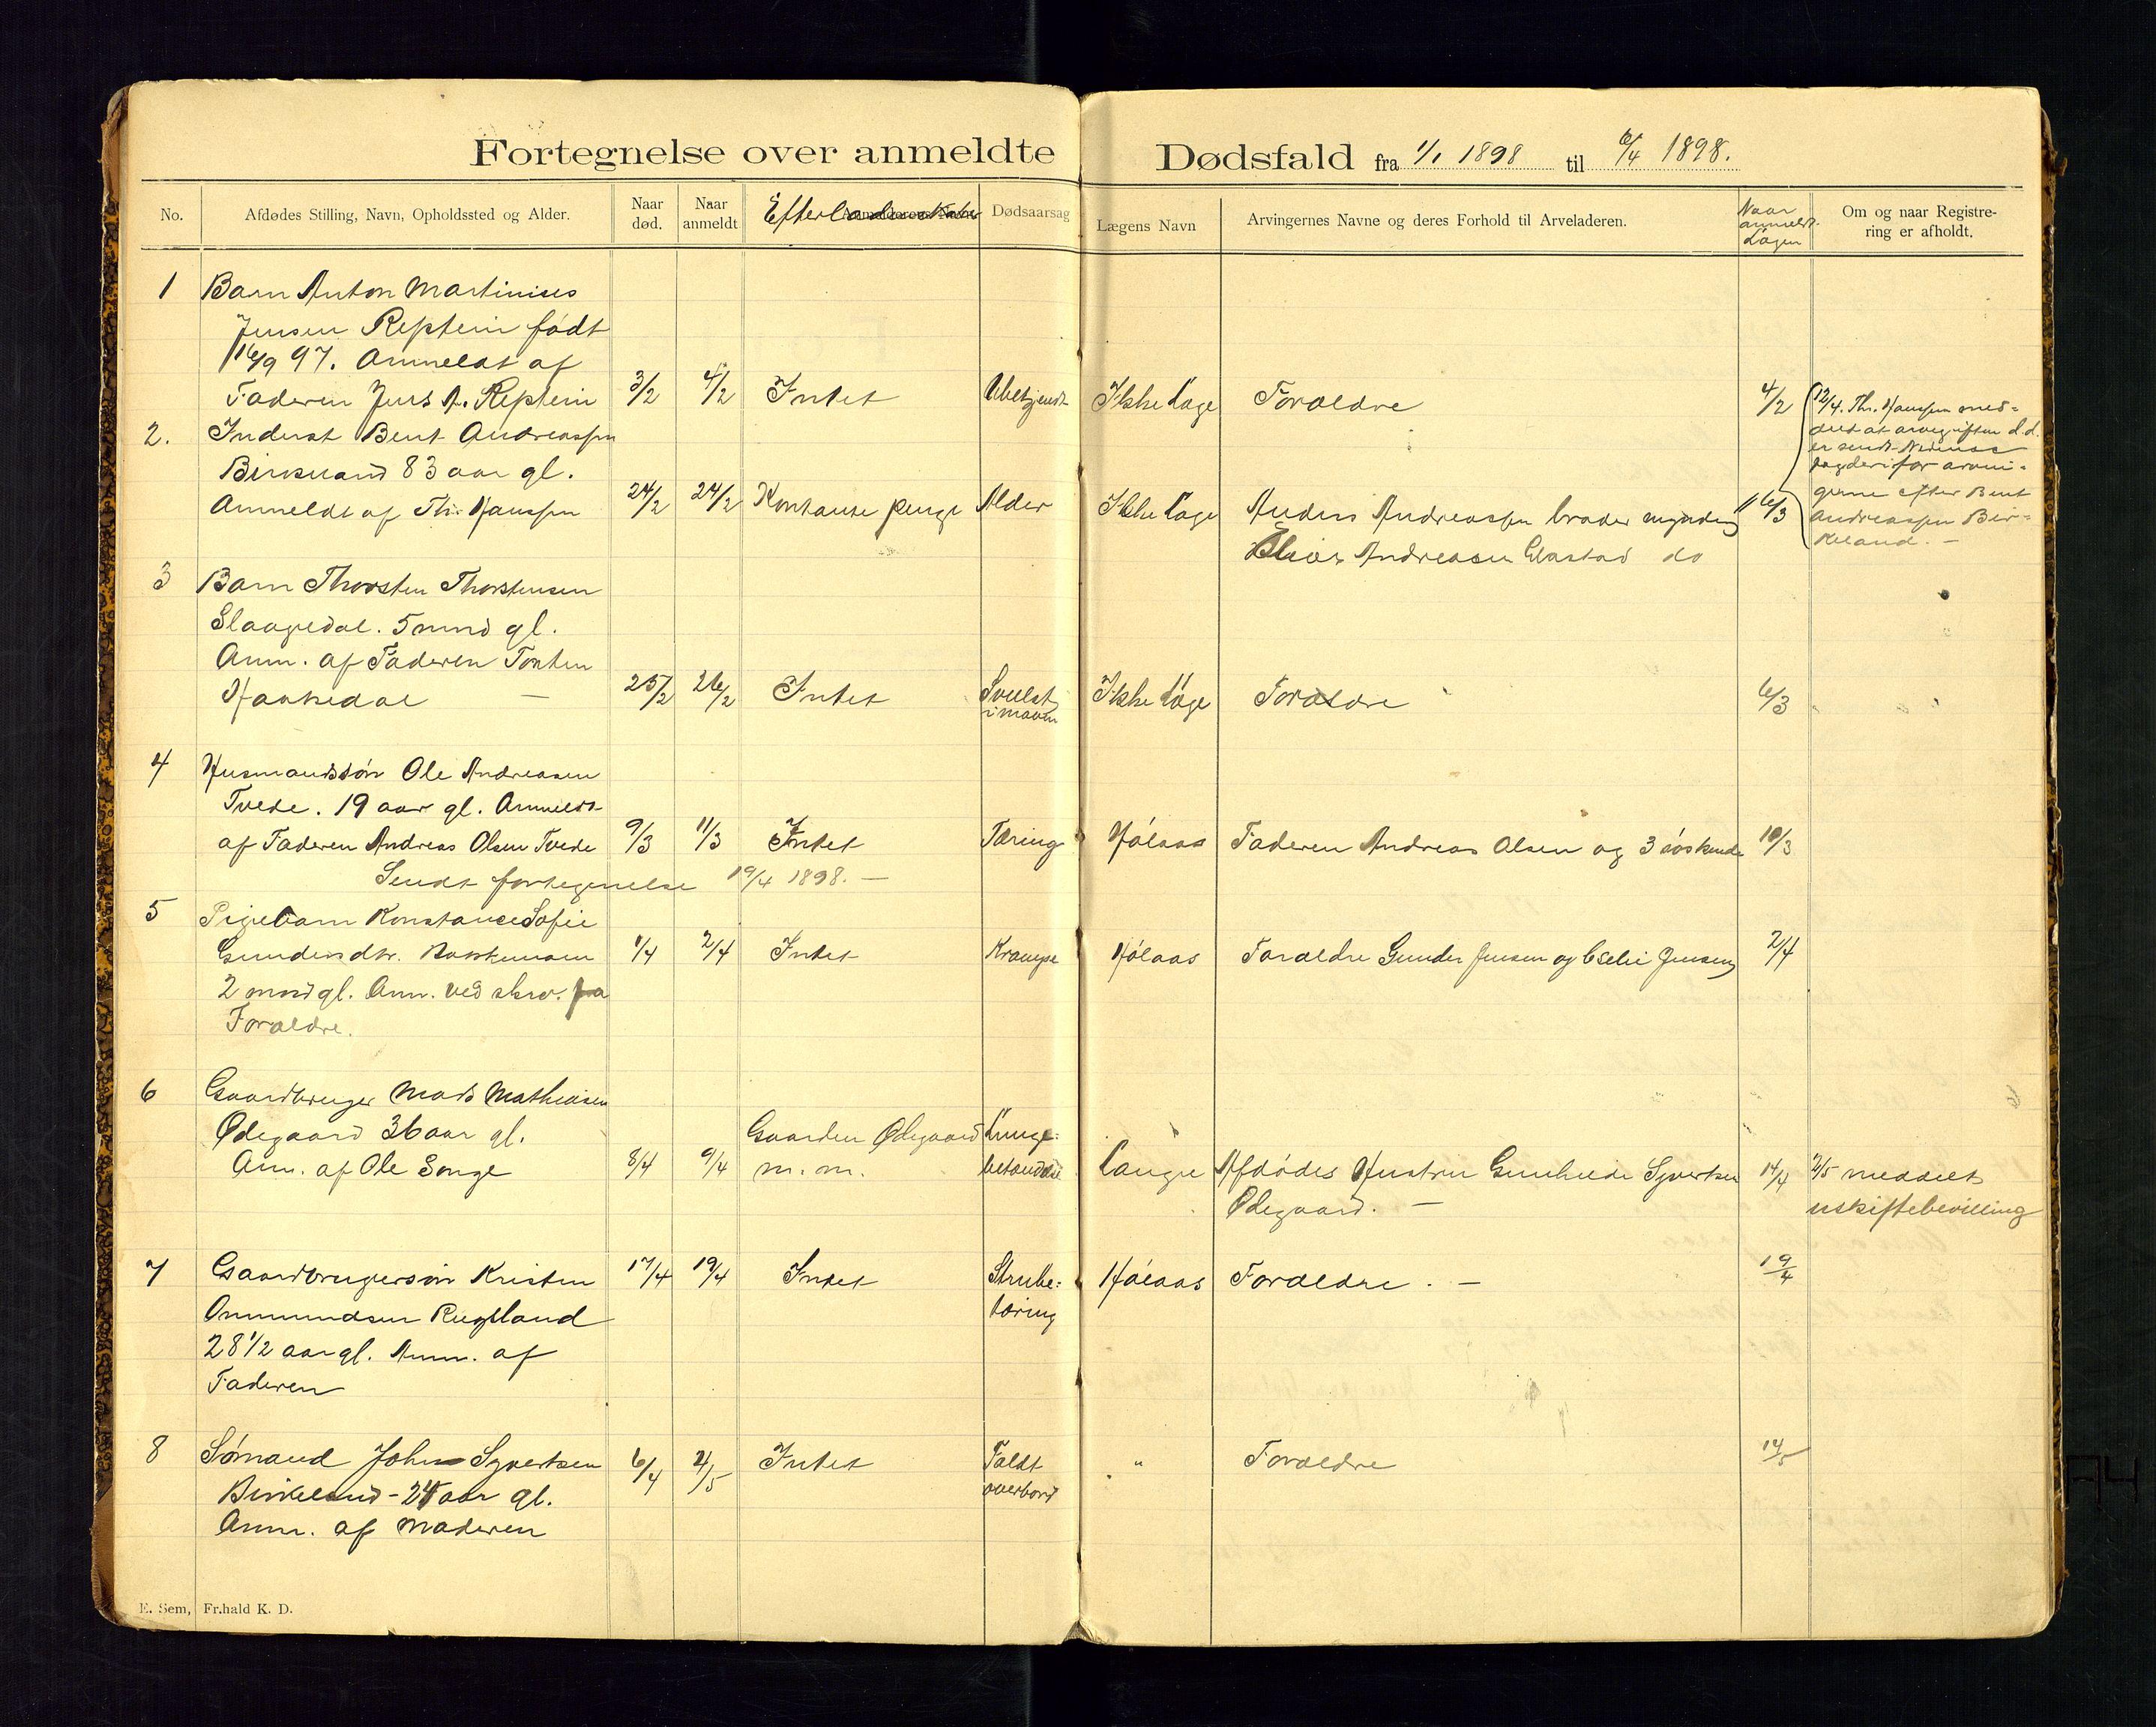 Fortegnelse over anmeldte Dødsfald fra 1/1 1898 til 6/4 1898.
No. Afdødes Stilling, Navn, Opholdssted og Alder. Naar død. Naar anmeldt Efterladenskaber Dødsaarsag Lægens Navn Arvingernes Navne og deres Forhold til Arveladeren. Naar anmeldt Lagen Om og naar Registrering er afholdt.
1 Barn Anton Martinius
Jensen Repstein født
16/9 97. Anmeldt af
Faderen Jens A. Repstein 3/2 4/2 Intet Ubekjendt Ikke Læge Forældre 4/2
2. Inderst Bent Andreassen
Birkeland 83 aar gl.
Anmeldt af Th. Hanssen 24/2 24/2 Kontante penge Alder Ikke Læge Anders Andreassen broder myndig 6/3
Elias Andreasen Glastad do
12/4. Th. Hanssen med-
delt at arvegiften d.d.
er sendt Nedenæs
fogderi for arvin-
gerne efter Bent
Andreassen Bir-
keland. —
3 Barn Thorsten Thorstensen
Slaagedal. 5 mnd gl.
Anm. af Faderen Torsten
Haakedal — 25/2 26/2 Intet Svulst i maven Ikke Læge Forældre 6/3
4 Husmandssön Ole Andreasen
Tvede. 19 aar gl. Anmeldt
af Faderen Andreas Olsen Tvede 9/3 11/3 Intet Tæring Hölaas Faderen Andreas Olsen og 3 söskende 10/3
Sendt fortegnelse 19/4 1898. —
5 Pigebarn Konstance Sofie
Gundersdtr. 1/4 2/4 Intet Krampe Hölaas Forældre Gunder Jensen og Jensen 2/4
2 mnd gl. Anm. ved skriv. fra
Forældre.
6 Gaardbruger Mads Mathiasen
Ødegaard 36 aar gl. Gaarden Ødegaard Lunge-
Anm. af Ole Songe 8/4 9/4 m. m. betændelse Lange Afdödes Hustru Gunhilde Syvertsen 14/4 2/5 meddelt
Ødegaard. — uskiftebevilling
7 Gaardbrugersön Kristen 17/4 19/4 Intet Strube- Hölaas Forældre. — 19/4
Ommundsen Rugsland tæring
28 1/2 aar gl. Anm. af
Faderen
8 Sömand John Syvertsen 6/4 2/5 Intet Faldt " Forældre 14/5
Birkeland - 24 aar gl. overbord
Anm. af Moderen
E. Sem, Fr.hald K. D.